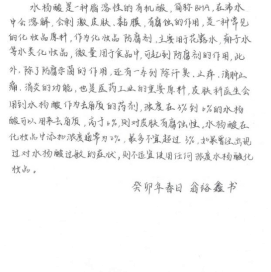 水杨酸是一种脂溶性的有机酸,简称BHA,在沸水
中会溶解,会刺激皮肤、黏膜,有腐蚀的作用,是一种常见
的化妆品原料,作为化妆品防腐剂,主要用于花露水、痱子水
等水类化妆品,微量用于食品中,可起到防腐剂的作用,此
外,除了防腐杀菌的作用,还有一去除汗臭、止痒、消肿止
痛、消炎的功能,也是医药工业的重要原料,皮肤科医生会
用到水杨酸作为去角质的药剂,浓度在3%到6%的水杨
酸可以用来去角质,高于6%,则对皮肤有腐蚀性,水杨酸在
化妆品中添加浓度通常为2%,最多不宜超过3%,如果曾经出现
过对水杨酸过敏的症状,则不适宜使用任何浓度水杨酸化
妆品。
癸卯年春日 翁络鑫书